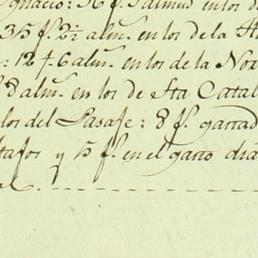 Ignacio: 36 f. 1 almud en los d
35 f. 2½ alm. en los de la H
: 12 f. 6 alm. en los de la No
8 alm. en los de Sta Catal
los del Pasaje: 8 f. garrad
tafor y 15 f. en el garro dia